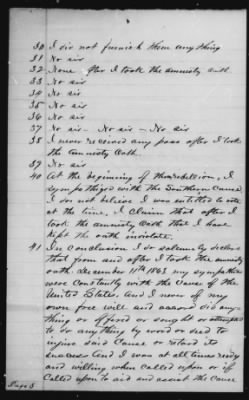 30 I did not furnish them any thing
31 No sir
32 None after I took the amnesty oath
33 No sir
34 No sir
35 No sir
36 No sir
37 No sir - No sir - No sir
38 I never received any pass after I took
the amnesty oath
39 No sir
40 At the beginning of the rebellion, I
sympathized with the Southern Cause
I do not believe I was entitled to vote
at the time, I claim that after I
took the amnesty oath that I have
kept the oath inviolate.
41 In Conclusion I do solemnly declare
that from and after I took the amnesty
oath December 11th 1863 my sympathies
were Constantly with the Cause of the
United States. And I never of my
own free will and accord did any
thing or offered or sought or attempted
to do any thing by word or deed to
injure said Cause or retard its
success And I was at all times ready
and willing when Called upon or if
Called upon to aid and assist the Cause
Page 5